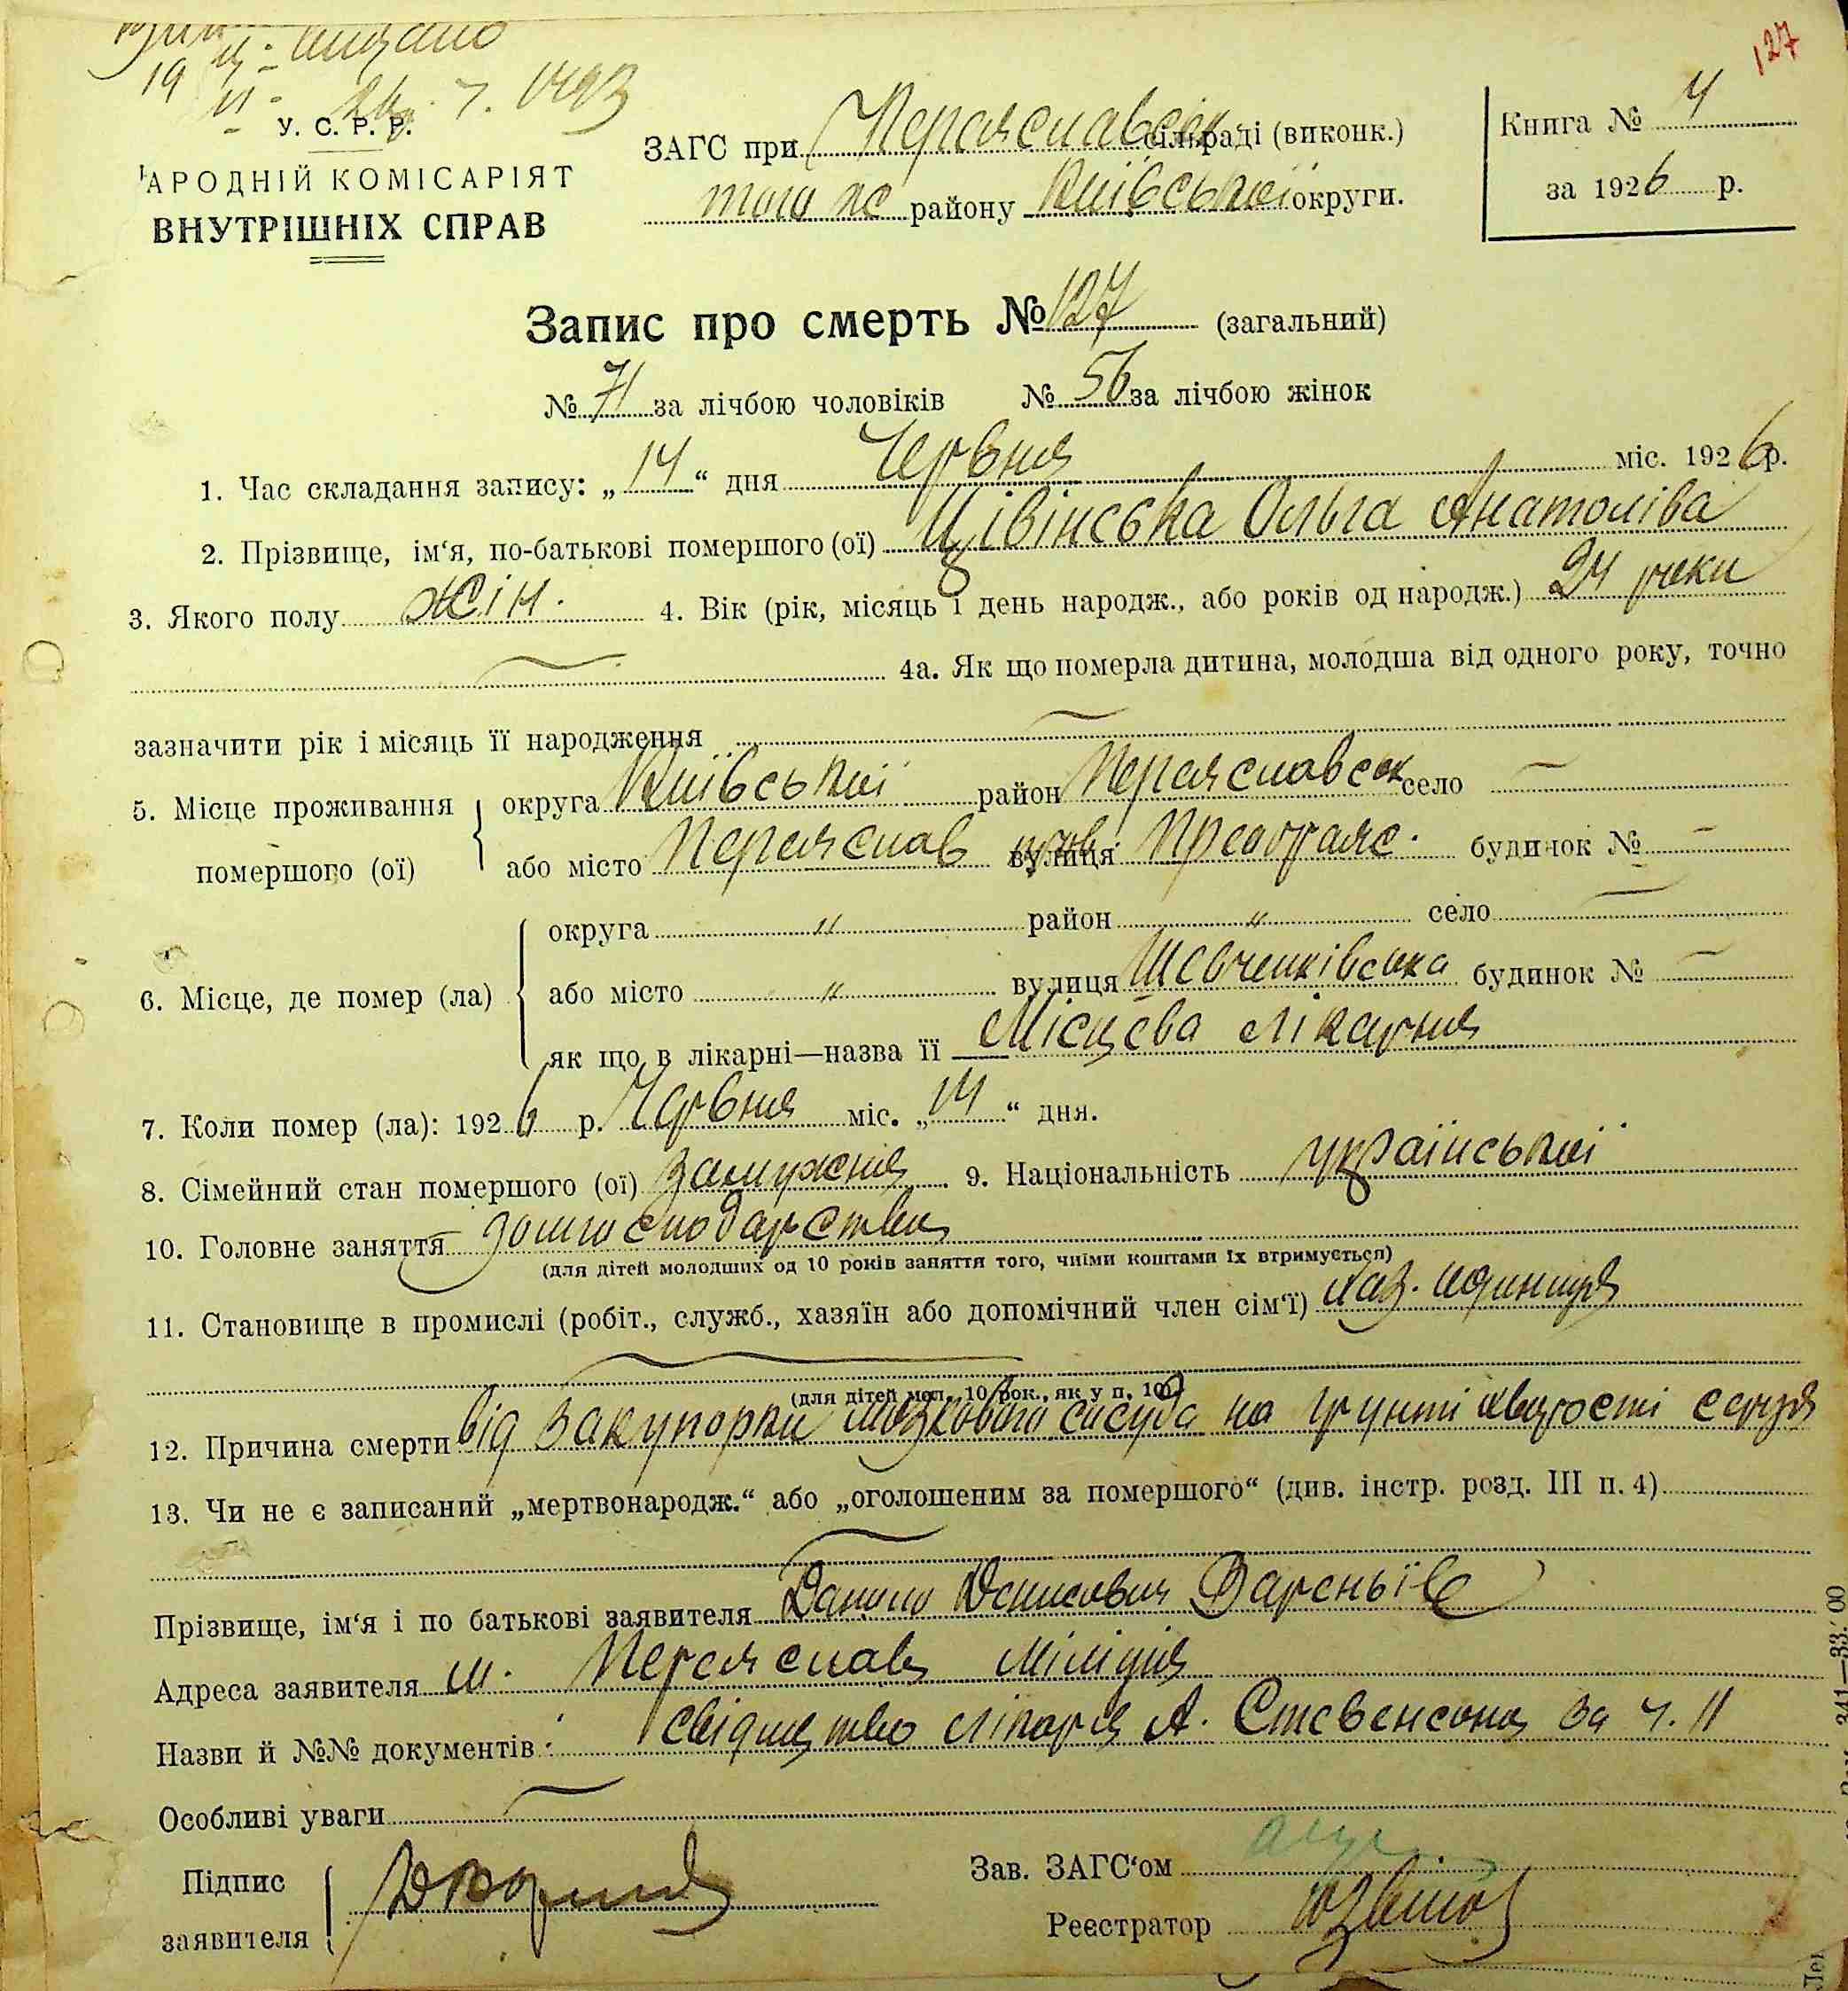 127
видано
19
У. С. Р. Р.
АРОДНІЙ КОМІСАРІЯТ
ВНУТРІШНІХ СПРАВ
ЗАГС при Переяславськ. сільраді (виконк.)
того ж району Київської округи.
Книга № 4
за 1926 р.
Запис про смерть № 127 (загальний)
№ 71 за лічбою чоловіків № 56 за лічбою жінок
1. Час складання запису: „14“ дня Червня міс. 1926 р.
2. Прізвище, ім‘я, по-батькові помершого (ої) Цівінська Ольга Анатоліва
3. Якого полу жін. 4. Вік (рік, місяць і день народж., або років од народж.) 24 роки
4а. Як що померла дитина, молодша від одного року, точно
зазначити рік і місяць її народження
5. Місце проживання помершого (ої) округа Київської район Переяславськ село —
або місто Переяслав вулиця Преображ. будинок № —
6. Місце, де помер (ла) округа " район " село —
або місто " вулиця Шевченківська будинок № —
як що в лікарні—назва її Місцева лікарня
7. Коли помер (ла): 1926 р. Червня міс. „14“ дня.
8. Сімейний стан помершого (ої) замужня 9. Національність української
10. Головне заняття домгосподарства
(для дітей молодших од 10 років заняття того, чиїми коштами їх втримується)
11. Становище в промислі (робіт., служб., хазяїн або допомічний член сім‘ї)
(для дітей мол. 10 рок., як у п. 10)
12. Причина смерти від закупорки мозкового сосуда на ґрунті хворости серця
13. Чи не є записаний „мертвонародж.“ або „оголошеним за помершого“ (див. інстр. розд. III п. 4)
Прізвище, ім‘я і по батькові заявителя Данило Денисович
Адреса заявителя м. Переяслав Міліція
Назви й №№ документів: свідоцтво лікаря А. Стевенсона за ч. 11
Особливі уваги —
Підпис заявителя
Зав. ЗАГС‘ом
Реєстратор